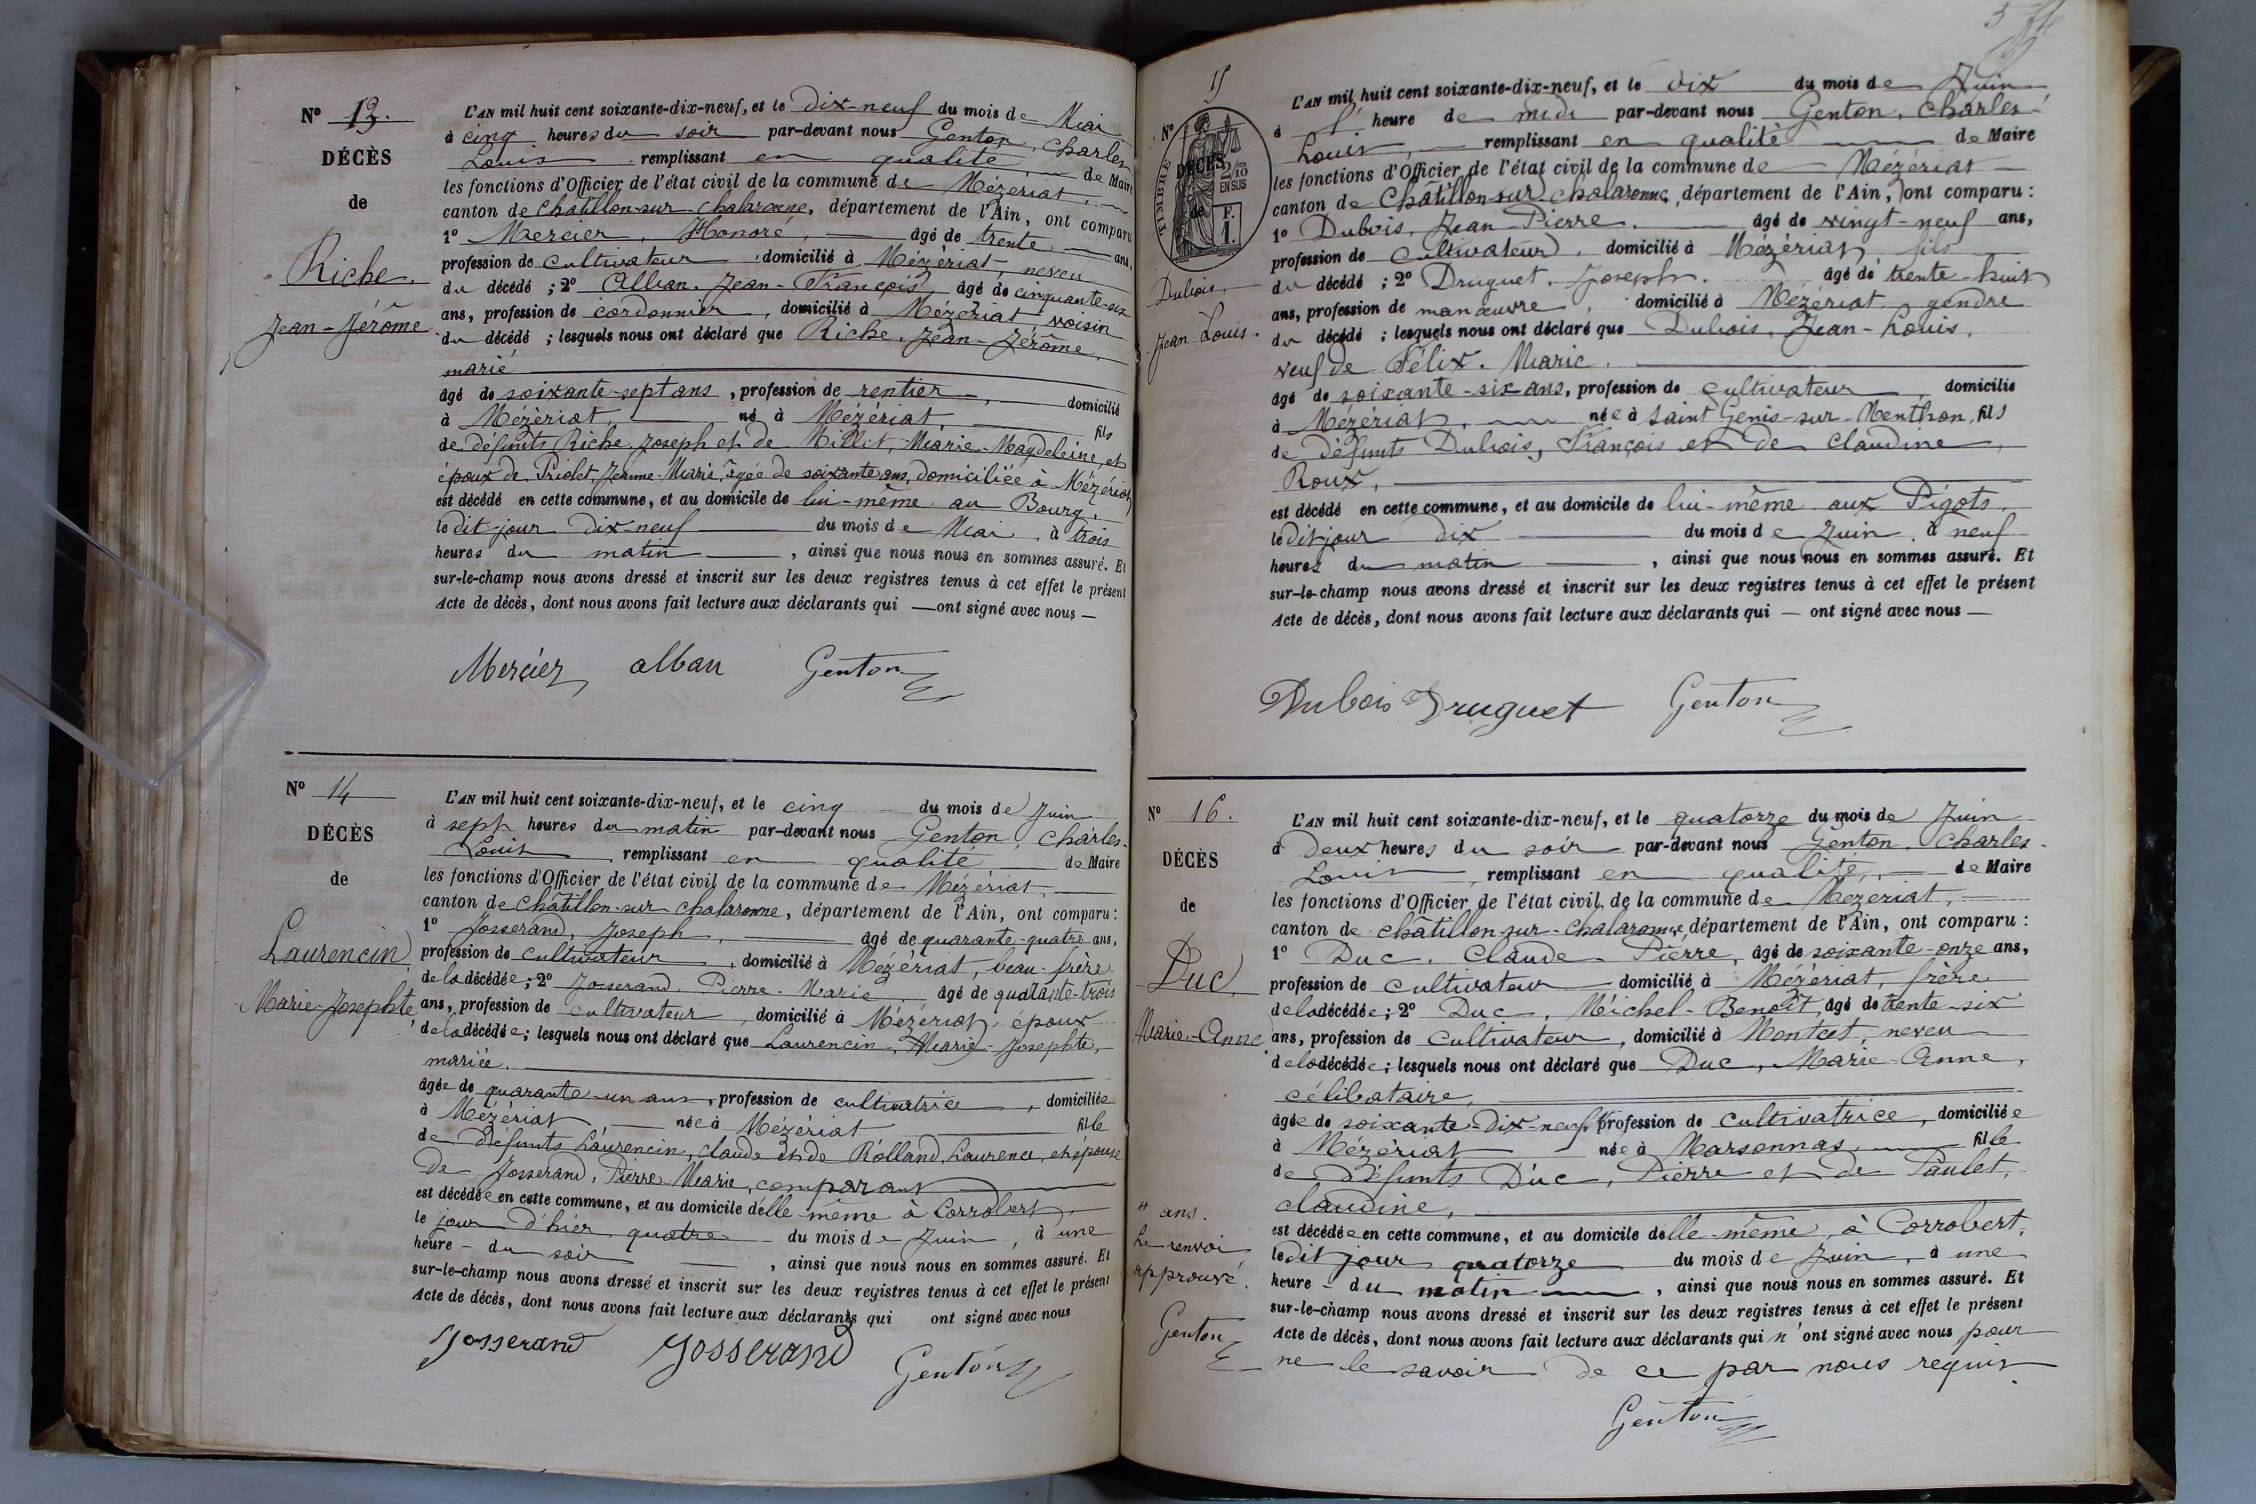 Nº 13.
DÉCÈS
de
Riche.
Jean-Jérôme
L'AN mil huit cent soixante-dix-neuf, et le dix-neuf du mois de Mai
à cinq heures du soir par-devant nous Genton, Charles
Louis remplissant en qualité de Maire
les fonctions d'Officier de l'état civil de la commune de Mézériat,
canton de Châtillon-sur-Chalaronne, département de l'Ain, ont comparu
1º Mercier, Honoré, âgé de trente ans,
profession de cultivateur domicilié à Mézériat, neveu
du décédé ; 2º Alban, Jean-François âgé de cinquante-six
ans, profession de cordonnier, domicilié à Mézériat voisin
du décédé ; lesquels nous ont déclaré que Riche, Jean-Jérôme,
marié
âgé de soixante-sept ans, profession de rentier, domicilié
à Mézériat né à Mézériat, fils
de défunts Riche, Joseph et de Millet, Marie-Magdeleine, et
époux de Priolet, Jeanne-Marie, âgée de soixante ans, domiciliée à Mézériat
est décédé en cette commune, et au domicile de lui-même au Bourg,
le dit jour dix-neuf du mois de Mai, à trois
heures du matin, ainsi que nous nous en sommes assuré. Et
sur-le-champ nous avons dressé et inscrit sur les deux registres tenus à cet effet le présent
Acte de décès, dont nous avons fait lecture aux déclarants qui — ont signé avec nous —
Mercier alban Genton
Nº 14
DÉCÈS
de
Laurencin
Marie-Josephte
L'AN mil huit cent soixante-dix-neuf, et le cinq du mois de Juin
à sept heures du matin par-devant nous Genton, Charles-
Louis remplissant en qualité de Maire
les fonctions d'Officier de l'état civil de la commune de Mézériat,
canton de Châtillon-sur-Chalaronne, département de l'Ain, ont comparu :
1º Josserand, Joseph, âgé de quarante-quatre ans,
profession de cultivateur, domicilié à Mézériat, beau-frère
de la décédée ; 2º Josserand, Pierre-Marie, âgé de quarante-trois
ans, profession de cultivateur, domicilié à Mézériat, époux
de la décédée ; lesquels nous ont déclaré que Laurencin, Marie-Josephte,
mariée.
âgée de quarante-un ans, profession de cultivatrice, domiciliée
à Mézériat née à Mézériat fille
de défunts Laurencin, Claude et de Rolland, Laurence, et épouse
de Josserand, Pierre Marie, comparant
est décédée en cette commune, et au domicile d'elle-même à Corrobert,
le jour d'hier, quatre du mois de Juin, à une
heure du soir, ainsi que nous nous en sommes assuré. Et
sur-le-champ nous avons dressé et inscrit sur les deux registres tenus à cet effet le présent
Acte de décès, dont nous avons fait lecture aux déclarants qui ont signé avec nous
Josserand Josserand Genton
15
Nº
DÉCÈS
de
TIMBRE
2/10
EN SUS
F.
1.
Dubois,
Jean-Louis.
L'AN mil huit cent soixante-dix-neuf, et le dix du mois de Juin
à l' heure de midi par-devant nous Genton, Charles-
Louis, remplissant en qualité de Maire
les fonctions d'Officier de l'état civil de la commune de Mézériat
canton de Châtillon-sur-Chalaronne, département de l'Ain, ont comparu :
1º Dubois, Jean-Pierre, âgé de vingt-neuf ans,
profession de cultivateur, domicilié à Mézériat, fils
du décédé ; 2º Druguet, Joseph, âgé de trente-huit
ans, profession de manœuvre, domicilié à Mézériat, gendre
du décédé ; lesquels nous ont déclaré que Dubois, Jean-Louis,
veuf de Félix, Marie,
âgé de soixante-six ans, profession de cultivateur domicilié
à Mézériat, née à Saint Genis-sur-Menthon, fils
de défunts Dubois, François et de Claudine
Roux,
est décédé en cette commune, et au domicile de lui-même aux Pigots,
le dit jour dix du mois de Juin, à neuf
heures du matin, ainsi que nous nous en sommes assuré. Et
sur-le-champ nous avons dressé et inscrit sur les deux registres tenus à cet effet le présent
Acte de décès, dont nous avons fait lecture aux déclarants qui — ont signé avec nous —
Dubois Druguet Genton
Nº 16.
DÉCÈS
de
Duc,
Marie-Anne
L'AN mil huit cent soixante-dix-neuf, et le quatorze du mois de Juin
à deux heures du soir par-devant nous Genton, Charles-
Louis, remplissant en qualité, de Maire
les fonctions d'Officier de l'état civil de la commune de Mézériat,
canton de Châtillon-sur-Chalaronne, département de l'Ain, ont comparu :
1º Duc, Claude-Pierre, âgé de soixante-onze ans,
profession de cultivateur domicilié à Mézériat, frère
de la décédée ; 2º Duc, Michel-Benoît, âgé de trente-six
ans, profession de cultivateur, domicilié à Montcet, neveu
de la décédée ; lesquels nous ont déclaré que Duc, Marie-Anne,
célibataire,
âgée de soixante-dix-neuf " profession de cultivatrice, domiciliée
à Mézériat née à Marsonnas, fille
de défunts Duc, Pierre et de Paulet,
Claudine,
est décédée en cette commune, et au domicile d'elle-même, à Corrobert,
le dit jour quatorze du mois de Juin, à une
heure du matin, ainsi que nous nous en sommes assuré. Et
sur-le-champ nous avons dressé et inscrit sur les deux registres tenus à cet effet le présent
Acte de décès, dont nous avons fait lecture aux déclarants qui n'ont signé avec nous pour
ne le savoir de ce par nous requis.
Genton
" ans.
Le renvoi
approuvé.
Genton